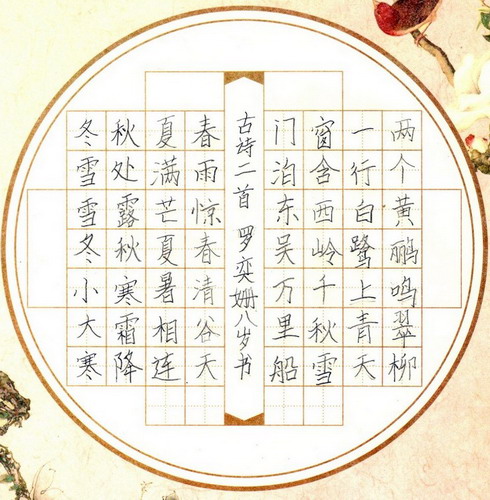 两个黄鹂鸣翠柳
一行白鹭上青天
窗含西岭千秋雪
门泊东吴万里船
古诗二首 罗奕姗八岁书
春雨惊春清谷天
夏满芒夏暑相连
秋处露秋寒霜降
冬雪雪冬小大寒